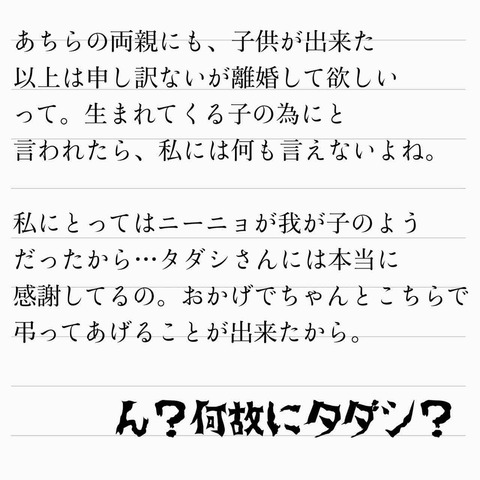 あちらの両親にも、子供が出来た
以上は申し訳ないが離婚して欲しい
って。生まれてくる子の為にと
言われたら、私には何も言えないよね。
私にとってはニーニョが我が子のよう
だったから…タダシさんには本当に
感謝してるの。おかげでちゃんとこちらで
弔ってあげることが出来たから。
ん？何故にタダシ？